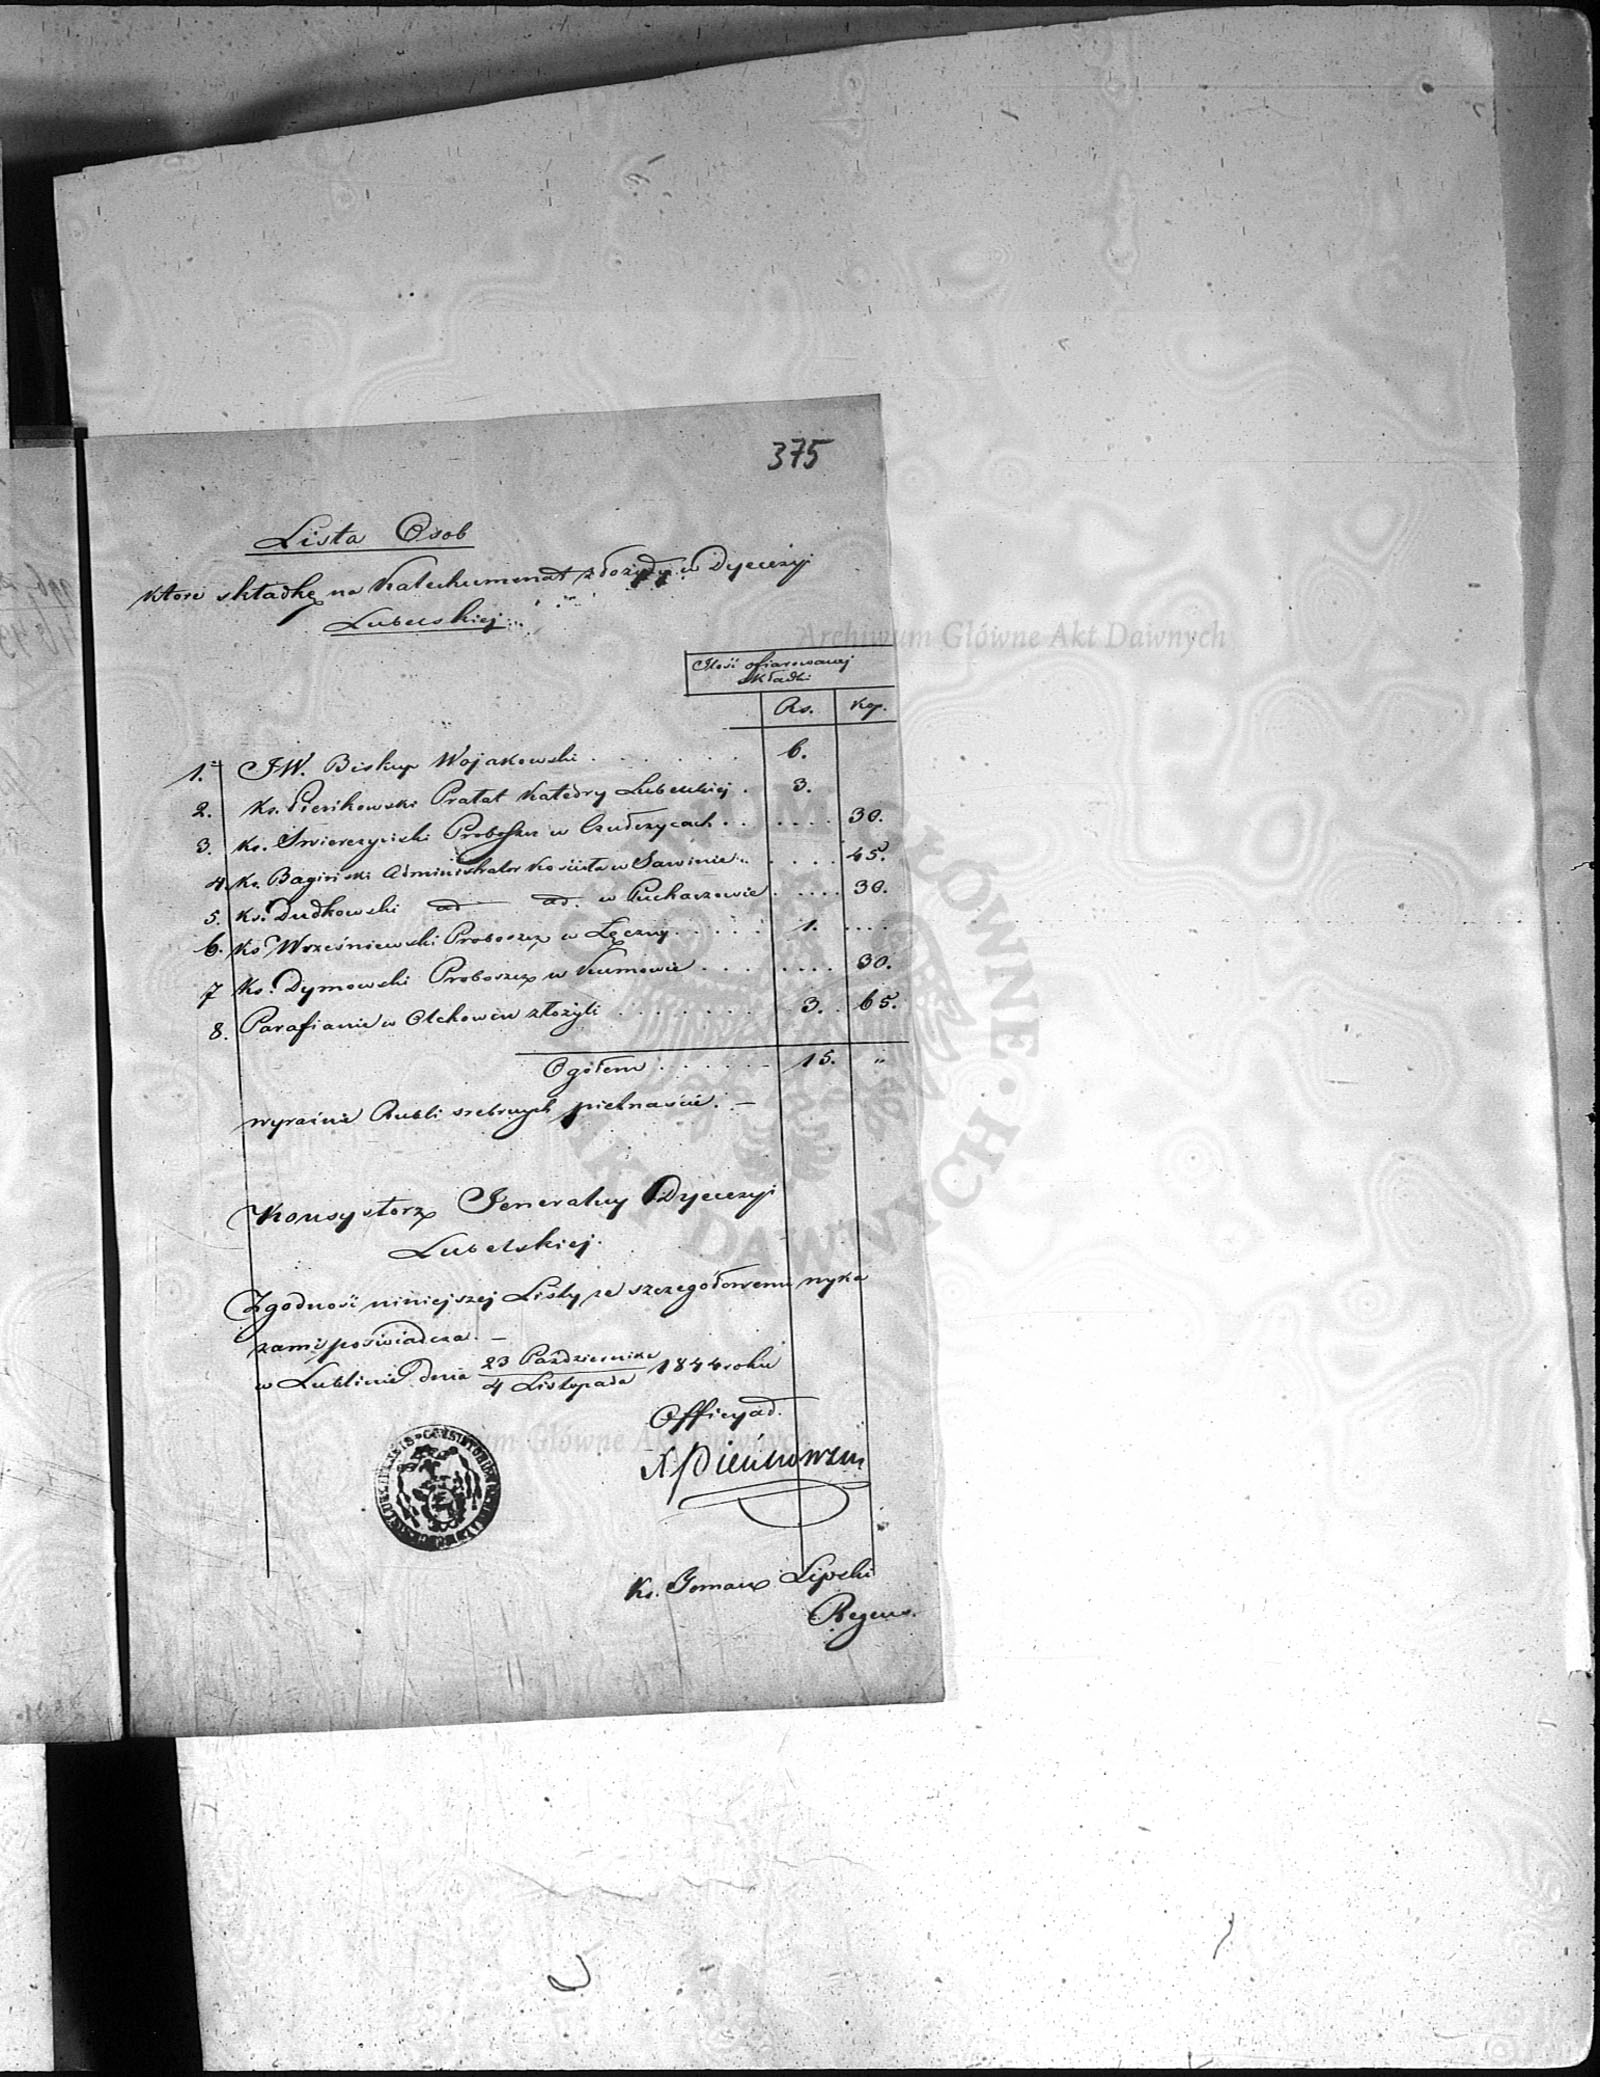 375
Lista Osob
które składkę na Katechumenat złożyły w Dyecezyi
Lubelskiej
Ilość ofiarowanej
składki
Rs. Kop.
1. JW. Biskup Wojakowski . . . . . . 6.
2. Ks. Pieńkowski Prałat Katedry Lubelskiej . 3.
3. Ks. Swierczyński Proboszcz w Czułczycach . . . . . . 30.
4. Ks. Bagiński Administrator Kościoła w Sawinie . . . . 45.
5. Ks. Dudkowski ad ad. w Puchaczowie . . . . 30.
6. Ks Wrześniewski Proboszcz w Łęczny . . . . . 1. . . . .
7 Ks. Dymowski Proboszcz w Kumowie . . . . . . . . 30.
8. Parafianie w Olchowcu złożyli . . . . . . . 3. 65.
Ogółem . . . . . . 15. "
wyraźnie Rubli srebrnych pietnaście. —
Konsystorz Jeneralny Dyecezyi
Lubelskiej.
Zgodność niniejszej Listy ze szczegółowemi wyka
zami poświadcza. —
w Lublinie dnia 23 Października / 4 Listopada 1844 roku
Officyał.
X. Pieńkowski
Ks. Tomasz Lipski
Regens.
Archiwum Główne Akt Dawnych
Archiwum Główne Akt Dawnych
ARCHIWUM GŁÓWNE AKT DAWNYCH